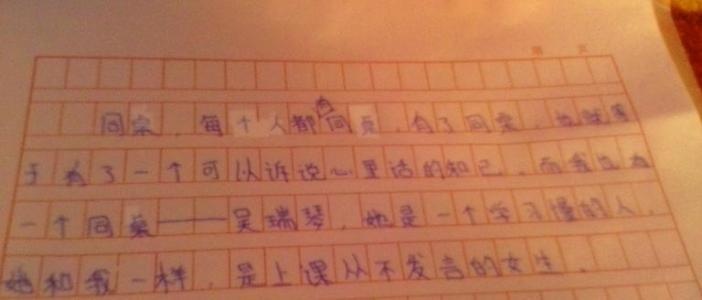 同桌，每个人都有同桌，有了同桌，也就等
于有了一个可以诉说心里话的知己，而我也有
一个同桌——吴瑞琴，她是一个学习懂的人，
她和我一样，是上课从不发言的女生。